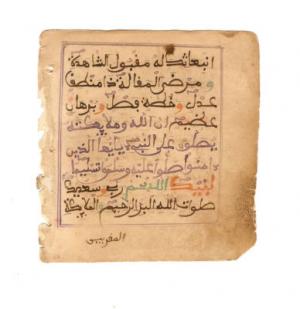 ابتعاثك له مقبول الشهادة
و مرضي المقالة ذا منطق
عدل و خطة فصل و برهان
عظيم ان الله وملايكته
يصلون على النبي يايها الذين
ءامنوا صلوا عليه وسلموا تسليما
لبيك اللهم ربي وسعديك
صلوات الله البر الرحيم والملايكة